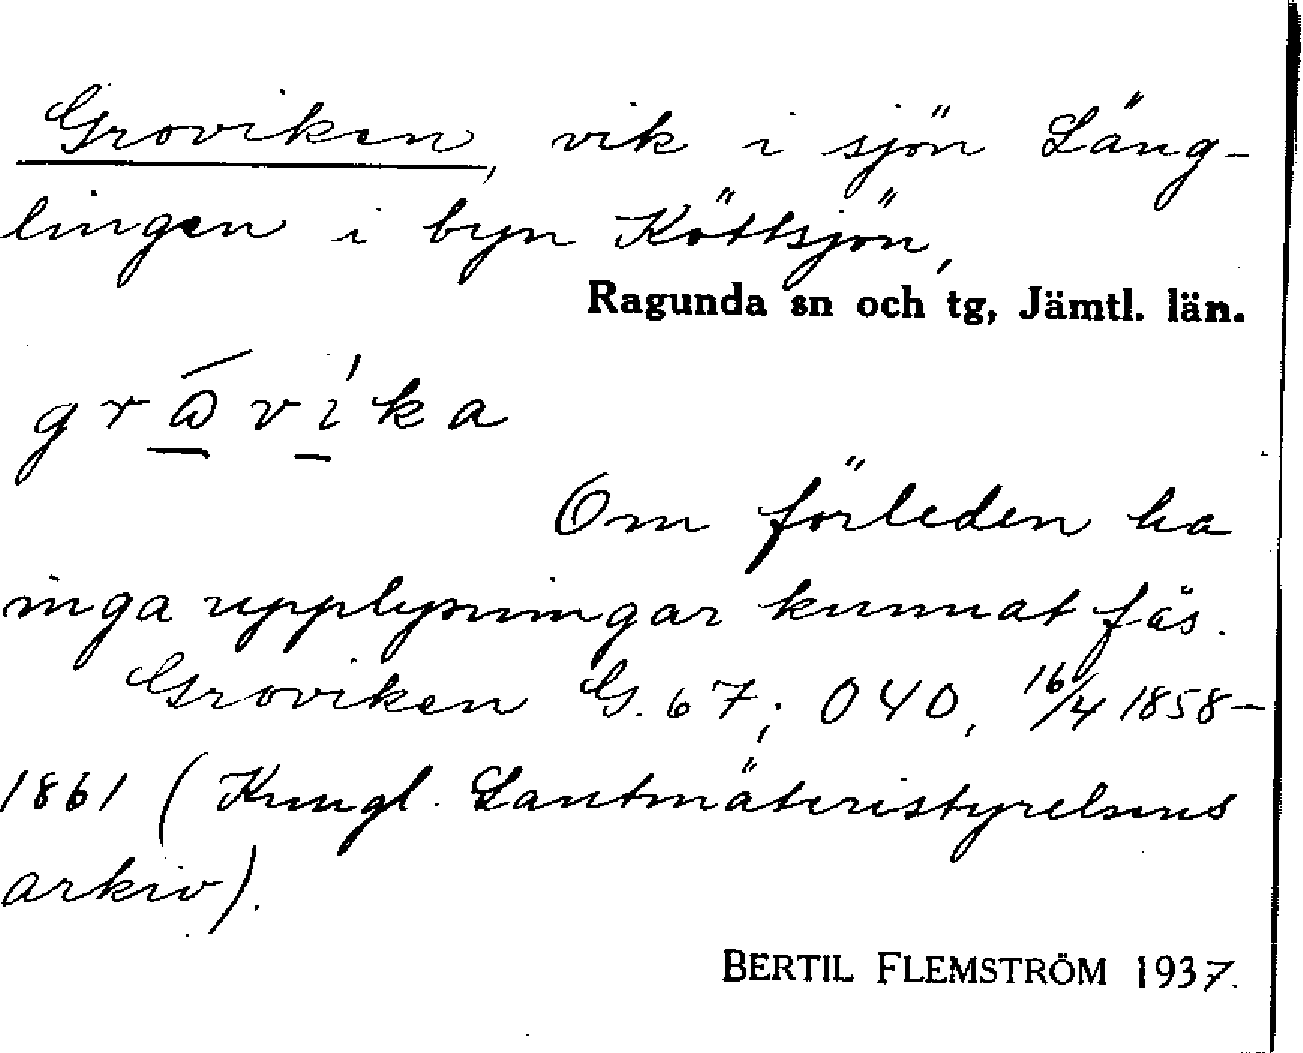 Groviken, vik i sjön Läng-
lingen i byn Köttsjön,
Ragunda sn och tg, Jämtl. län.
grávika
Om förleden ha
inga upplysningar kunnat fås.
Groviken G. 67; 040, 16/4 1858–
1861 (Kungl. Lantmäteristyrelsens
arkiv).
BERTIL FLEMSTRÖM 1937.